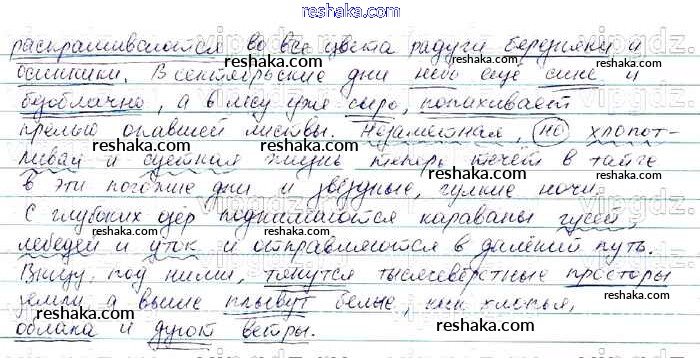 reshaka.com
раскрашиваются во все цвета радуги березняки и
осинники. В сентябрьские дни небо ещё сине и
безоблачно, а в лесу уже сыро, попахивает
прелью опавшей листвы. Незаметная, но хлопот-
ливая и суетная жизнь теперь течёт в тайге
в эти погожие дни и звёздные, гулкие ночи.
С глубоких озёр поднимаются караваны гусей,
лебедей и уток и отправляются в далёкий путь.
Внизу, под ними, тянутся тысячевёрстные просторы
земли, а выше плывут белые, как хлопья,
облака и дуют ветры.